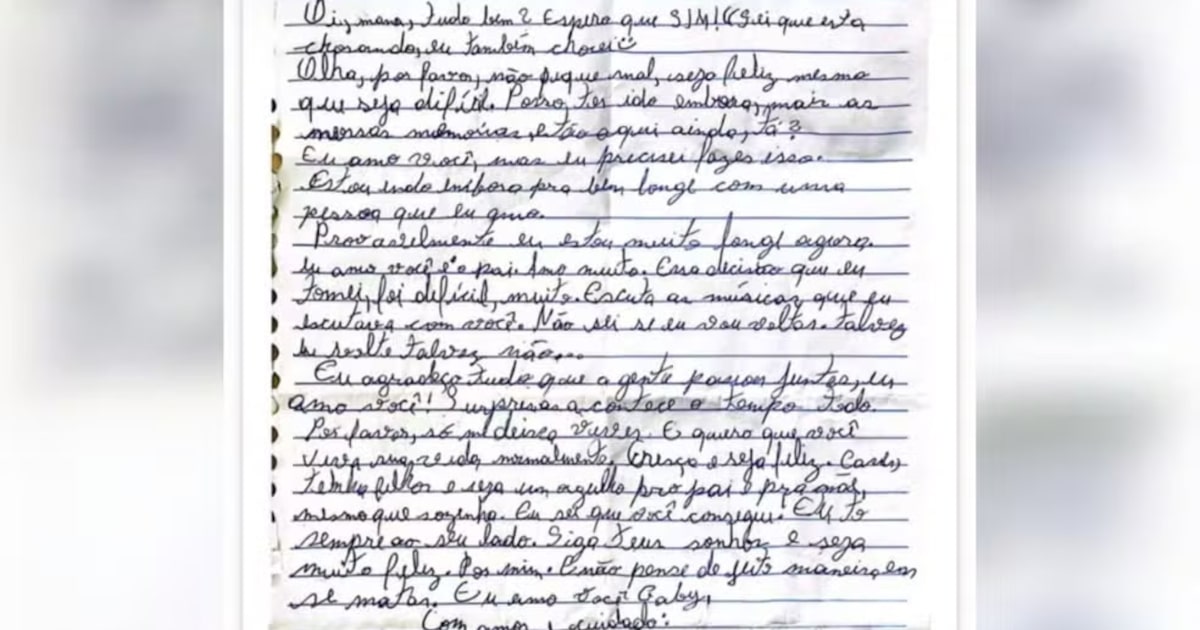 Oi, mana, tudo bem? Espero que SIM! (Sei que esta
chorando, eu também chorei
Olha, por favor, não fique mal, seja feliz mesmo
que seja difícil. Posso ter ido embora, mais as
nossas memórias estão aqui ainda, tá?
Eu amo você, mas eu precisei fazer isso.
Estou indo embora pra bem longe com uma
pessoa que eu amo.
Provavelmente eu estou muito longe agora.
Eu amo você e o pai. Amo muito. Essa decisão que eu
tomei, foi difícil, muito. Escuta as músicas que eu
escutava com você. Não sei se eu vou voltar. Talvez
eu volte talvez não...
Eu agradeço tudo que a gente passou juntas, eu
amo você! Surpresas acontece o tempo todo.
Por favor, só me deixa viver. E quero que você
viva sua vida normalmente. Cresça e seja feliz. Case,
tenha filhos e seja um orgulho pro pai e pra mãe,
mesmo que sozinha. Eu sei que você consegue. Eu to
sempre ao seu lado. Siga teus sonhos e seja
muito feliz. Por mim. E não pense de jeito maneira em
se matar. Eu amo você Gaby,
Com amor e cuidado: